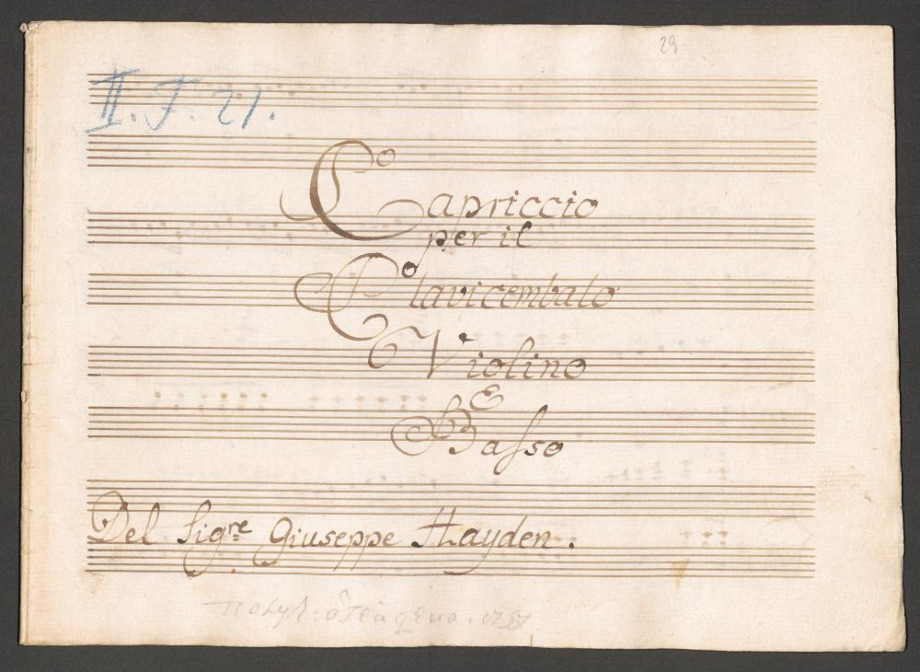 29
II. J. 21.
Capriccio
per il
Clavicembalo
Violino
E
Basso
Del Sigre Giuseppe Hayden.